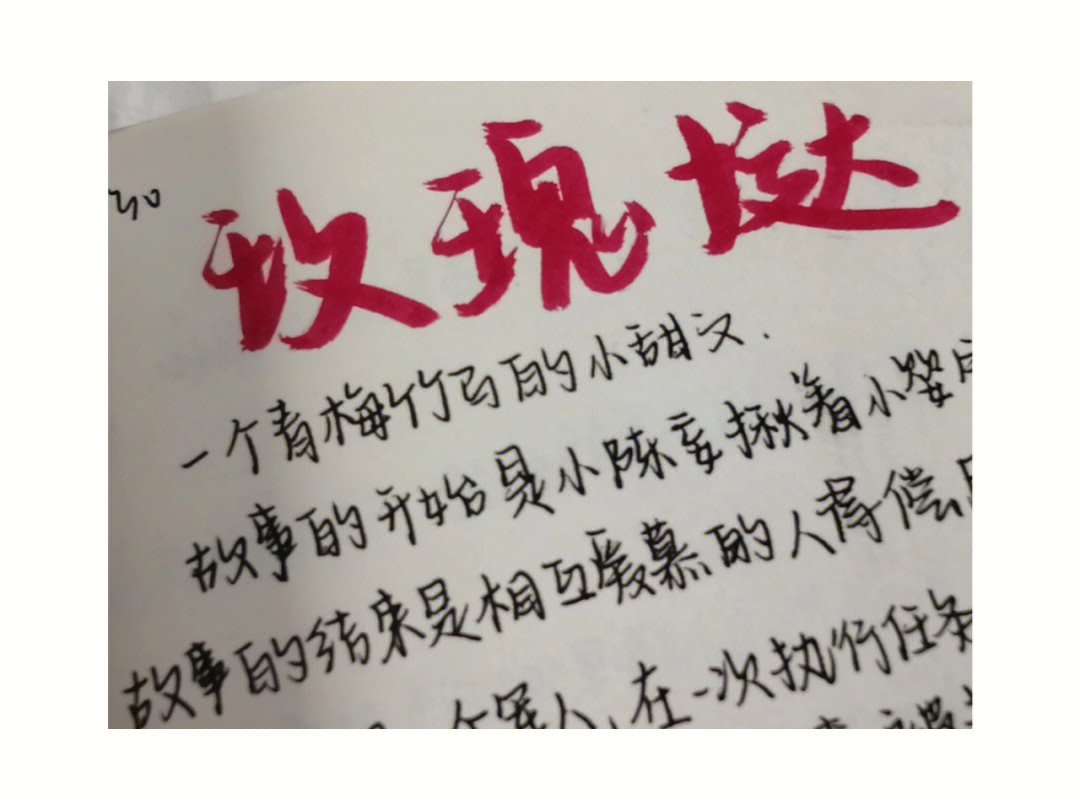 玫瑰挞
一个青梅竹马的小甜文.
故事的开始是小陈妄揪着小
故事的结束是相互爱慕的人得偿
个军人,在一次执行任务